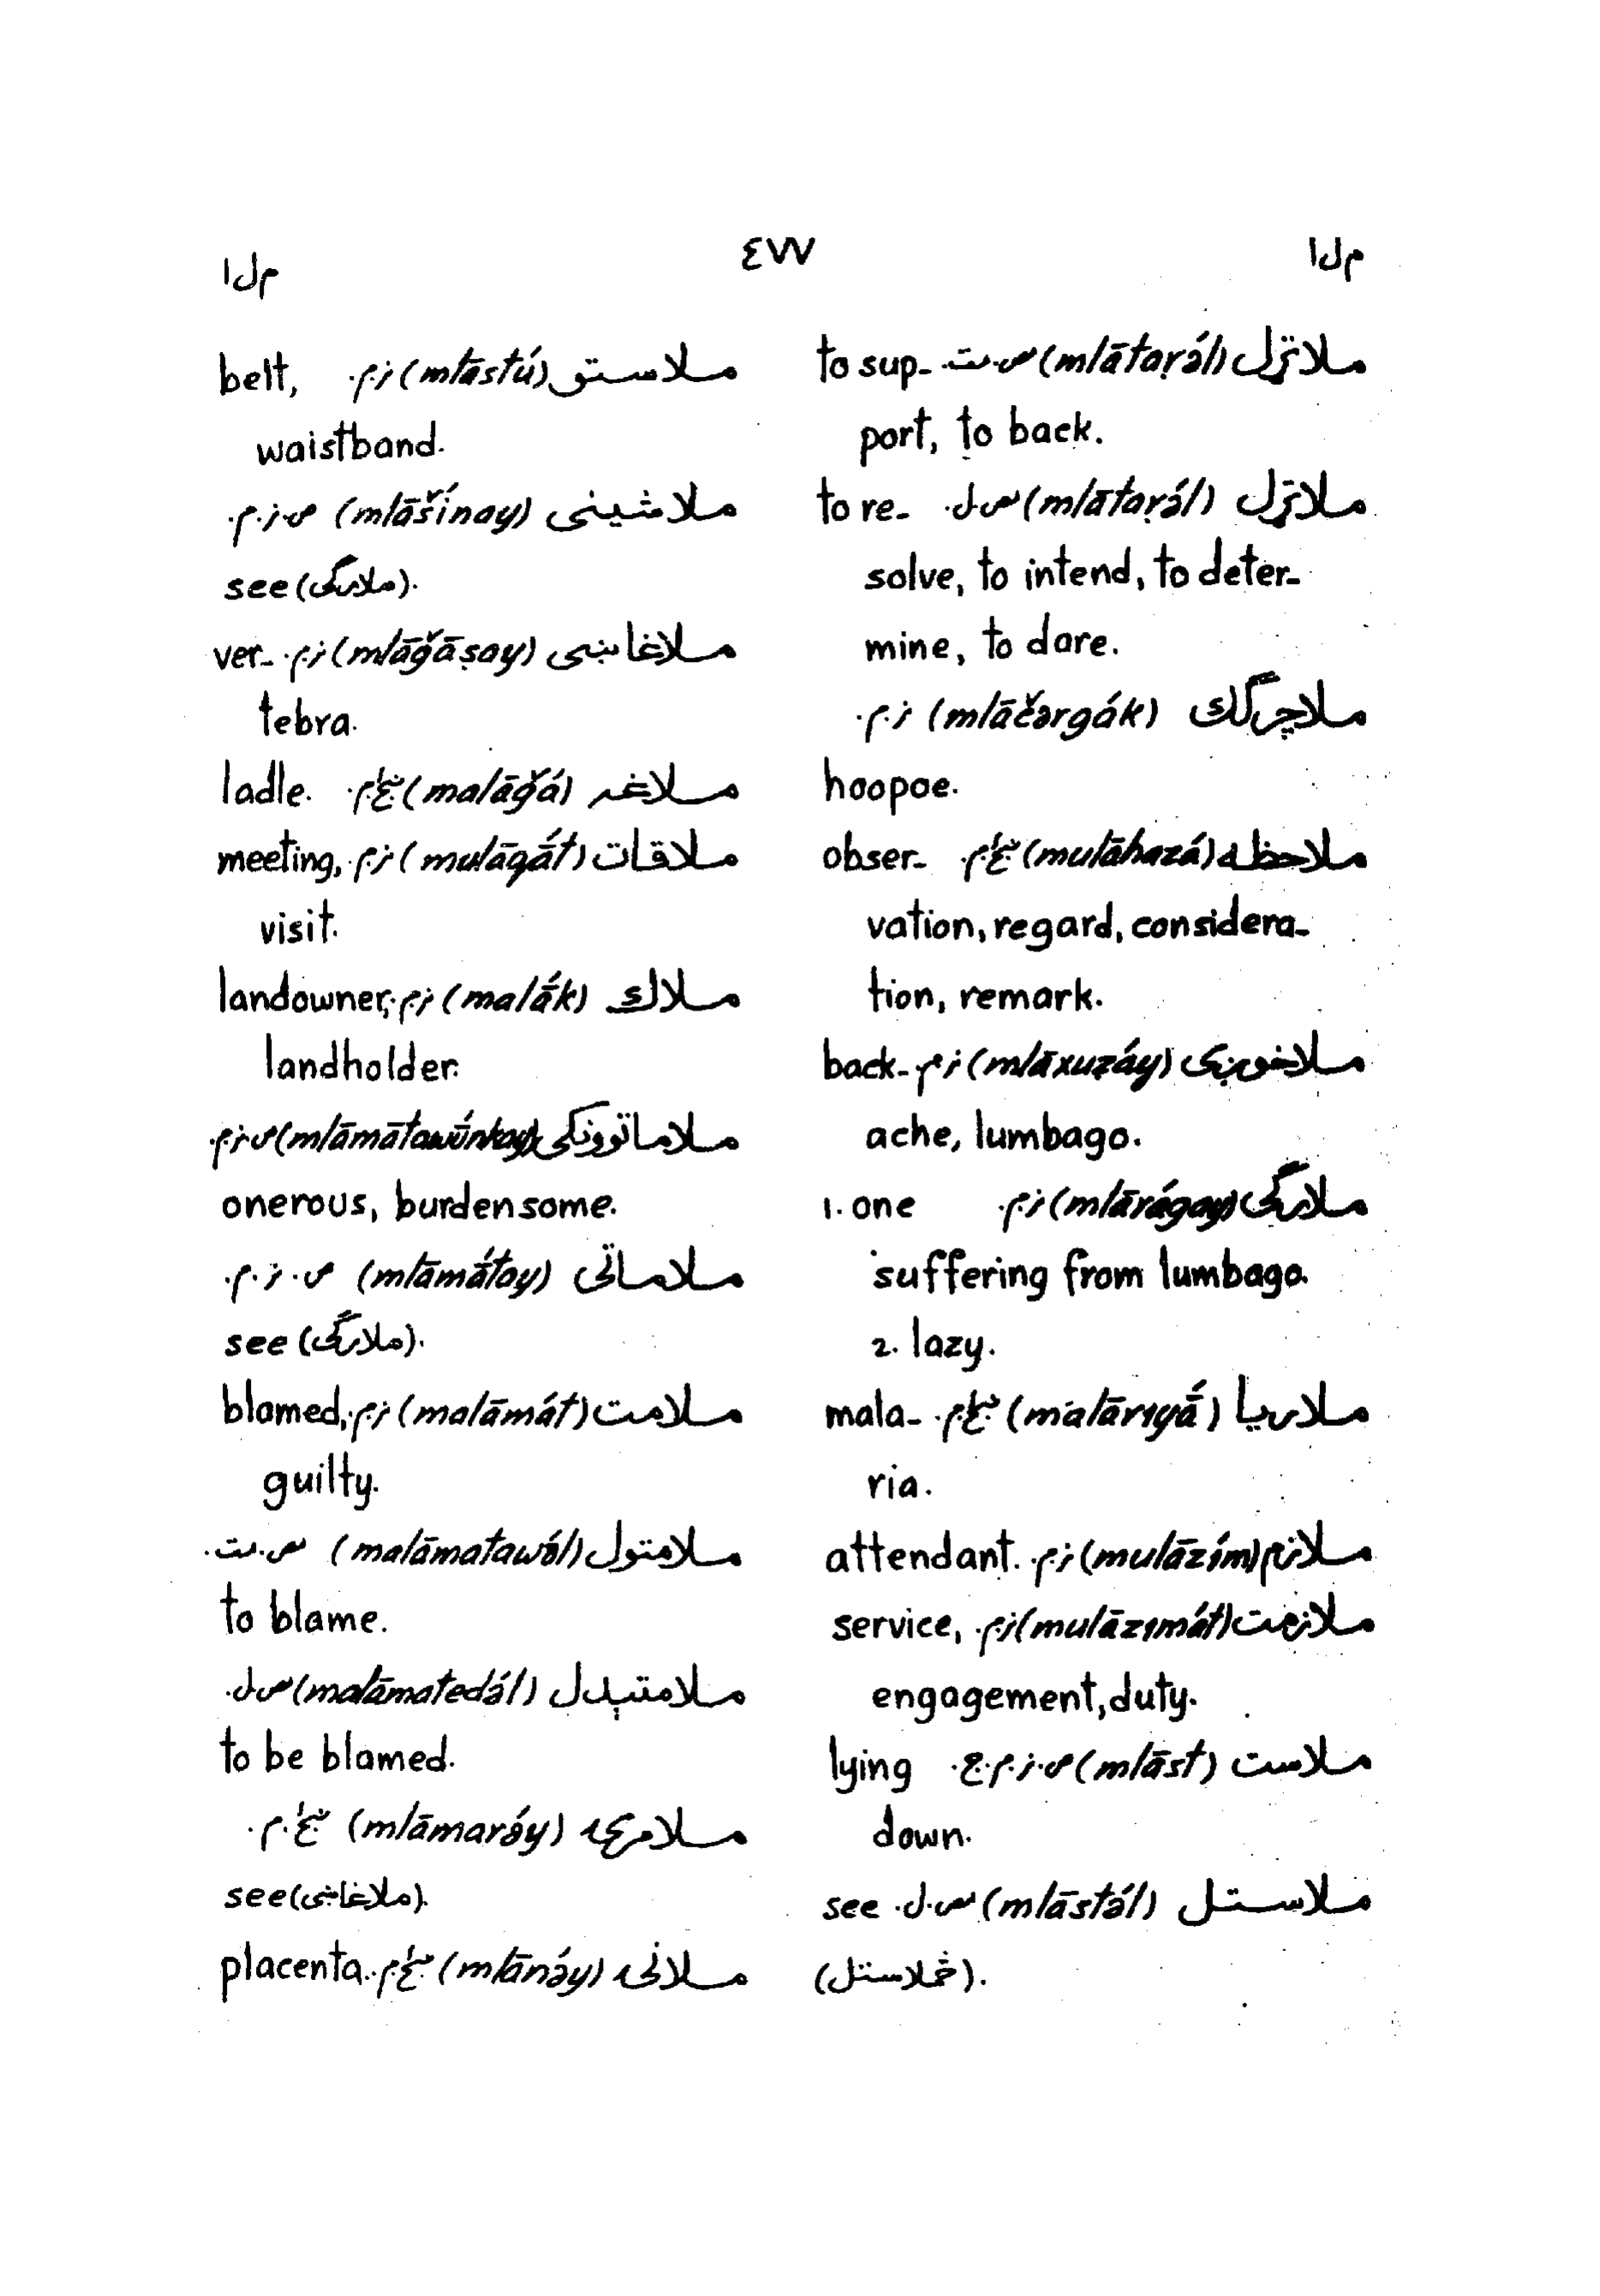 م ل ا ٤٧٧ م ل ا
ملاتړل (mlātaṛə́l) ص.ت. to sup-
port, to back.
ملاتړل (mlātaṛə́l) ص.ل. to re-
solve, to intend, to deter-
mine, to dare.
ملاچرګك (mlāčərgák) ز.م.
hoopoe.
ملاحظه (mulāhazá) ښځ.م. obser-
vation, regard, considera-
tion, remark.
ملاخوږی (mlāxuẓáy) ز.م. back-
ache, lumbago.
ملارګی (mlārágay) ز.م. 1. one
suffering from lumbago.
2. lazy.
ملاريا (malārıyā́) ښځ.م. mala-
ria.
ملازم (mulāzím) ز.م. attendant.
ملازمت (mulāzımát) ز.م. service,
engagement, duty.
ملاست (mlāst) ص.ز.م.ج. lying
down.
ملاستل (mlāstə́l) ص.ل. see
(څملاستل).
ملاستو (mlāstú) ز.م. belt,
waistband.
ملاشينی (mlāšínay) ص.ز.م.
see (ملارګی).
ملاغاښی (mlāğāṣay) ز.م. ver-
tebra.
ملاغه (malāğá) ښځ.م. ladle.
ملاقات (mulāqā́t) ز.م. meeting,
visit.
ملاك (malā́k) ز.م. landowner,
landholder.
ملاماتوونکی (mlāmātawúnkay) ص.ز.م.
onerous, burdensome.
ملاماتی (mlāmā́tay) ص.ز.م.
see (ملارګی).
ملامت (malāmát) ز.م. blamed,
guilty.
ملامتول (malāmatawə́l) ص.ت.
to blame.
ملامتېدل (malāmatedə́l) ص.ل.
to be blamed.
ملامرۍ (mlāmarə́y) ښځ.م.
see (ملاغاښی).
ملانۍ (mlānə́y) ښځ.م. placenta.